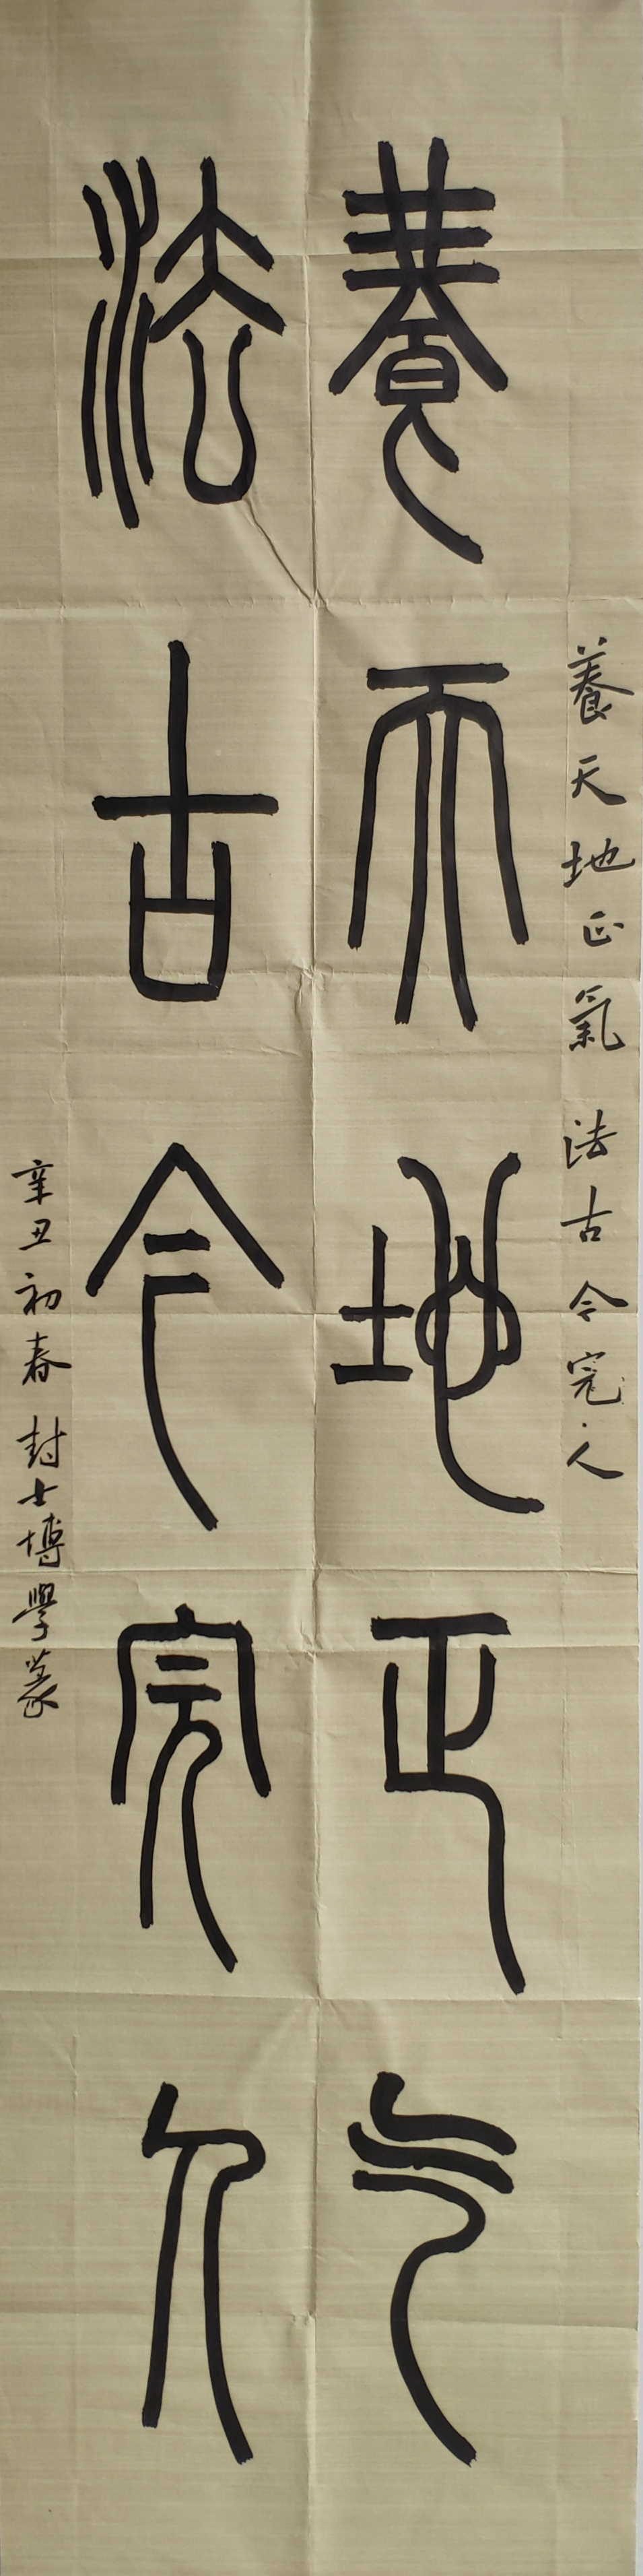 養天地正氣 法古今完人
養天地正气
法古今完人
辛丑初春 封士博學篆